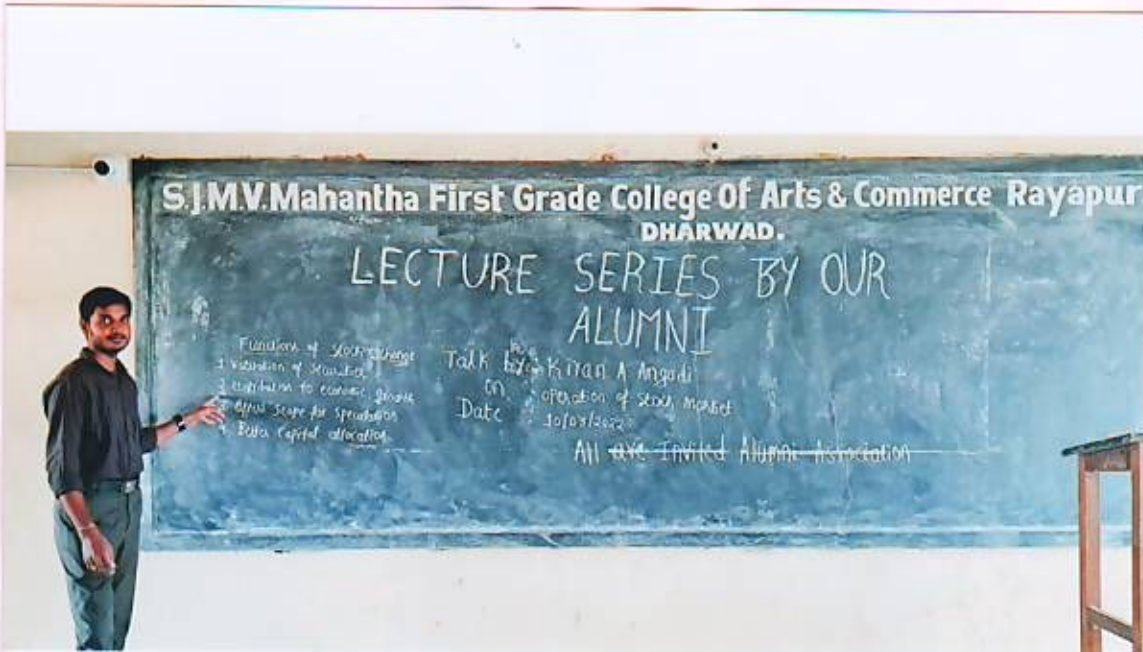 S.J.M.V.Mahantha First Grade College Of Arts & Commerce Rayapur
DHARWAD.
LECTURE SERIES BY OUR
ALUMNI
Functions of Stock Exchange
1 Valuation of Securities
2 contribution to economic growth
3 offers scope for speculation
4. Better Capital allocation
Talk by : Kiran A Angadi
on : operation of stock Market
Date :
All are Invited Alumni Association